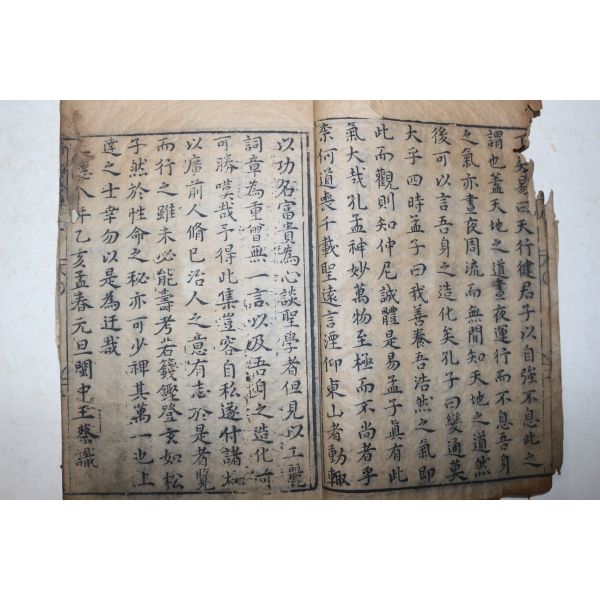 易曰天行健君子以自強不息此之
謂也蓋天地之道晝夜運行而不息吾身
之氣亦晝夜周流而無間知天地之道然
後可以言吾身之造化矣孔子曰變通莫
大乎四時孟子曰我善養吾浩然之氣即
此而觀則知仲尼誠體是易孟子真有此
氣大哉孔孟神妙萬物至極而不尚者乎
柰何道喪千載聖遠言湮仰東山者動輙
以功名富貴為心談聖學者但見以工麗
詞章為重曾無一言以及吾道之造化可
可勝嘆哉予得此集豈容自私遂付諸梓
以廣前人脩已治人之意有志於是者覽
而行之雖未必能壽考若籛鏗登玄如松
子然於性命之秘亦可少裨其萬一也上
達之士幸勿以是為迂哉
八年乙亥孟春元旦閩中王蔡識